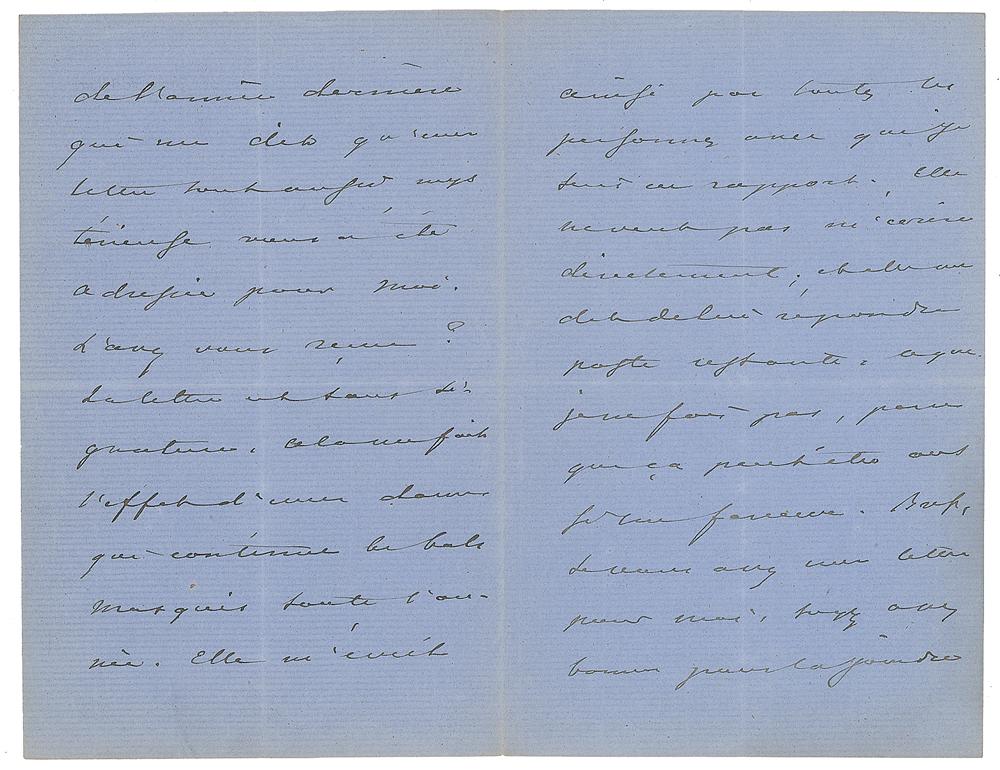 de l'année dernière
qui me dit qu'une
lettre tout aussi mys
térieuse vous a été
adressée pour moi.
L'avez vous reçue ?
La lettre est sans si-
gnature, cela me fait
l'effet d'une dame
qui continue le bal
masqué toute l'an-
née. Elle m'écrit
ainsi par toutes les
personnes avec qui je
suis en rapport. Elle
ne veut pas m'écrire
directement, et elle me
dit de lui répondre
poste restante, ce que
je ne fais pas, parce
que ça peut être aussi
une farceuse. Bref,
si vous avez une lettre
pour moi, soyez assez
bonne pour la joindre